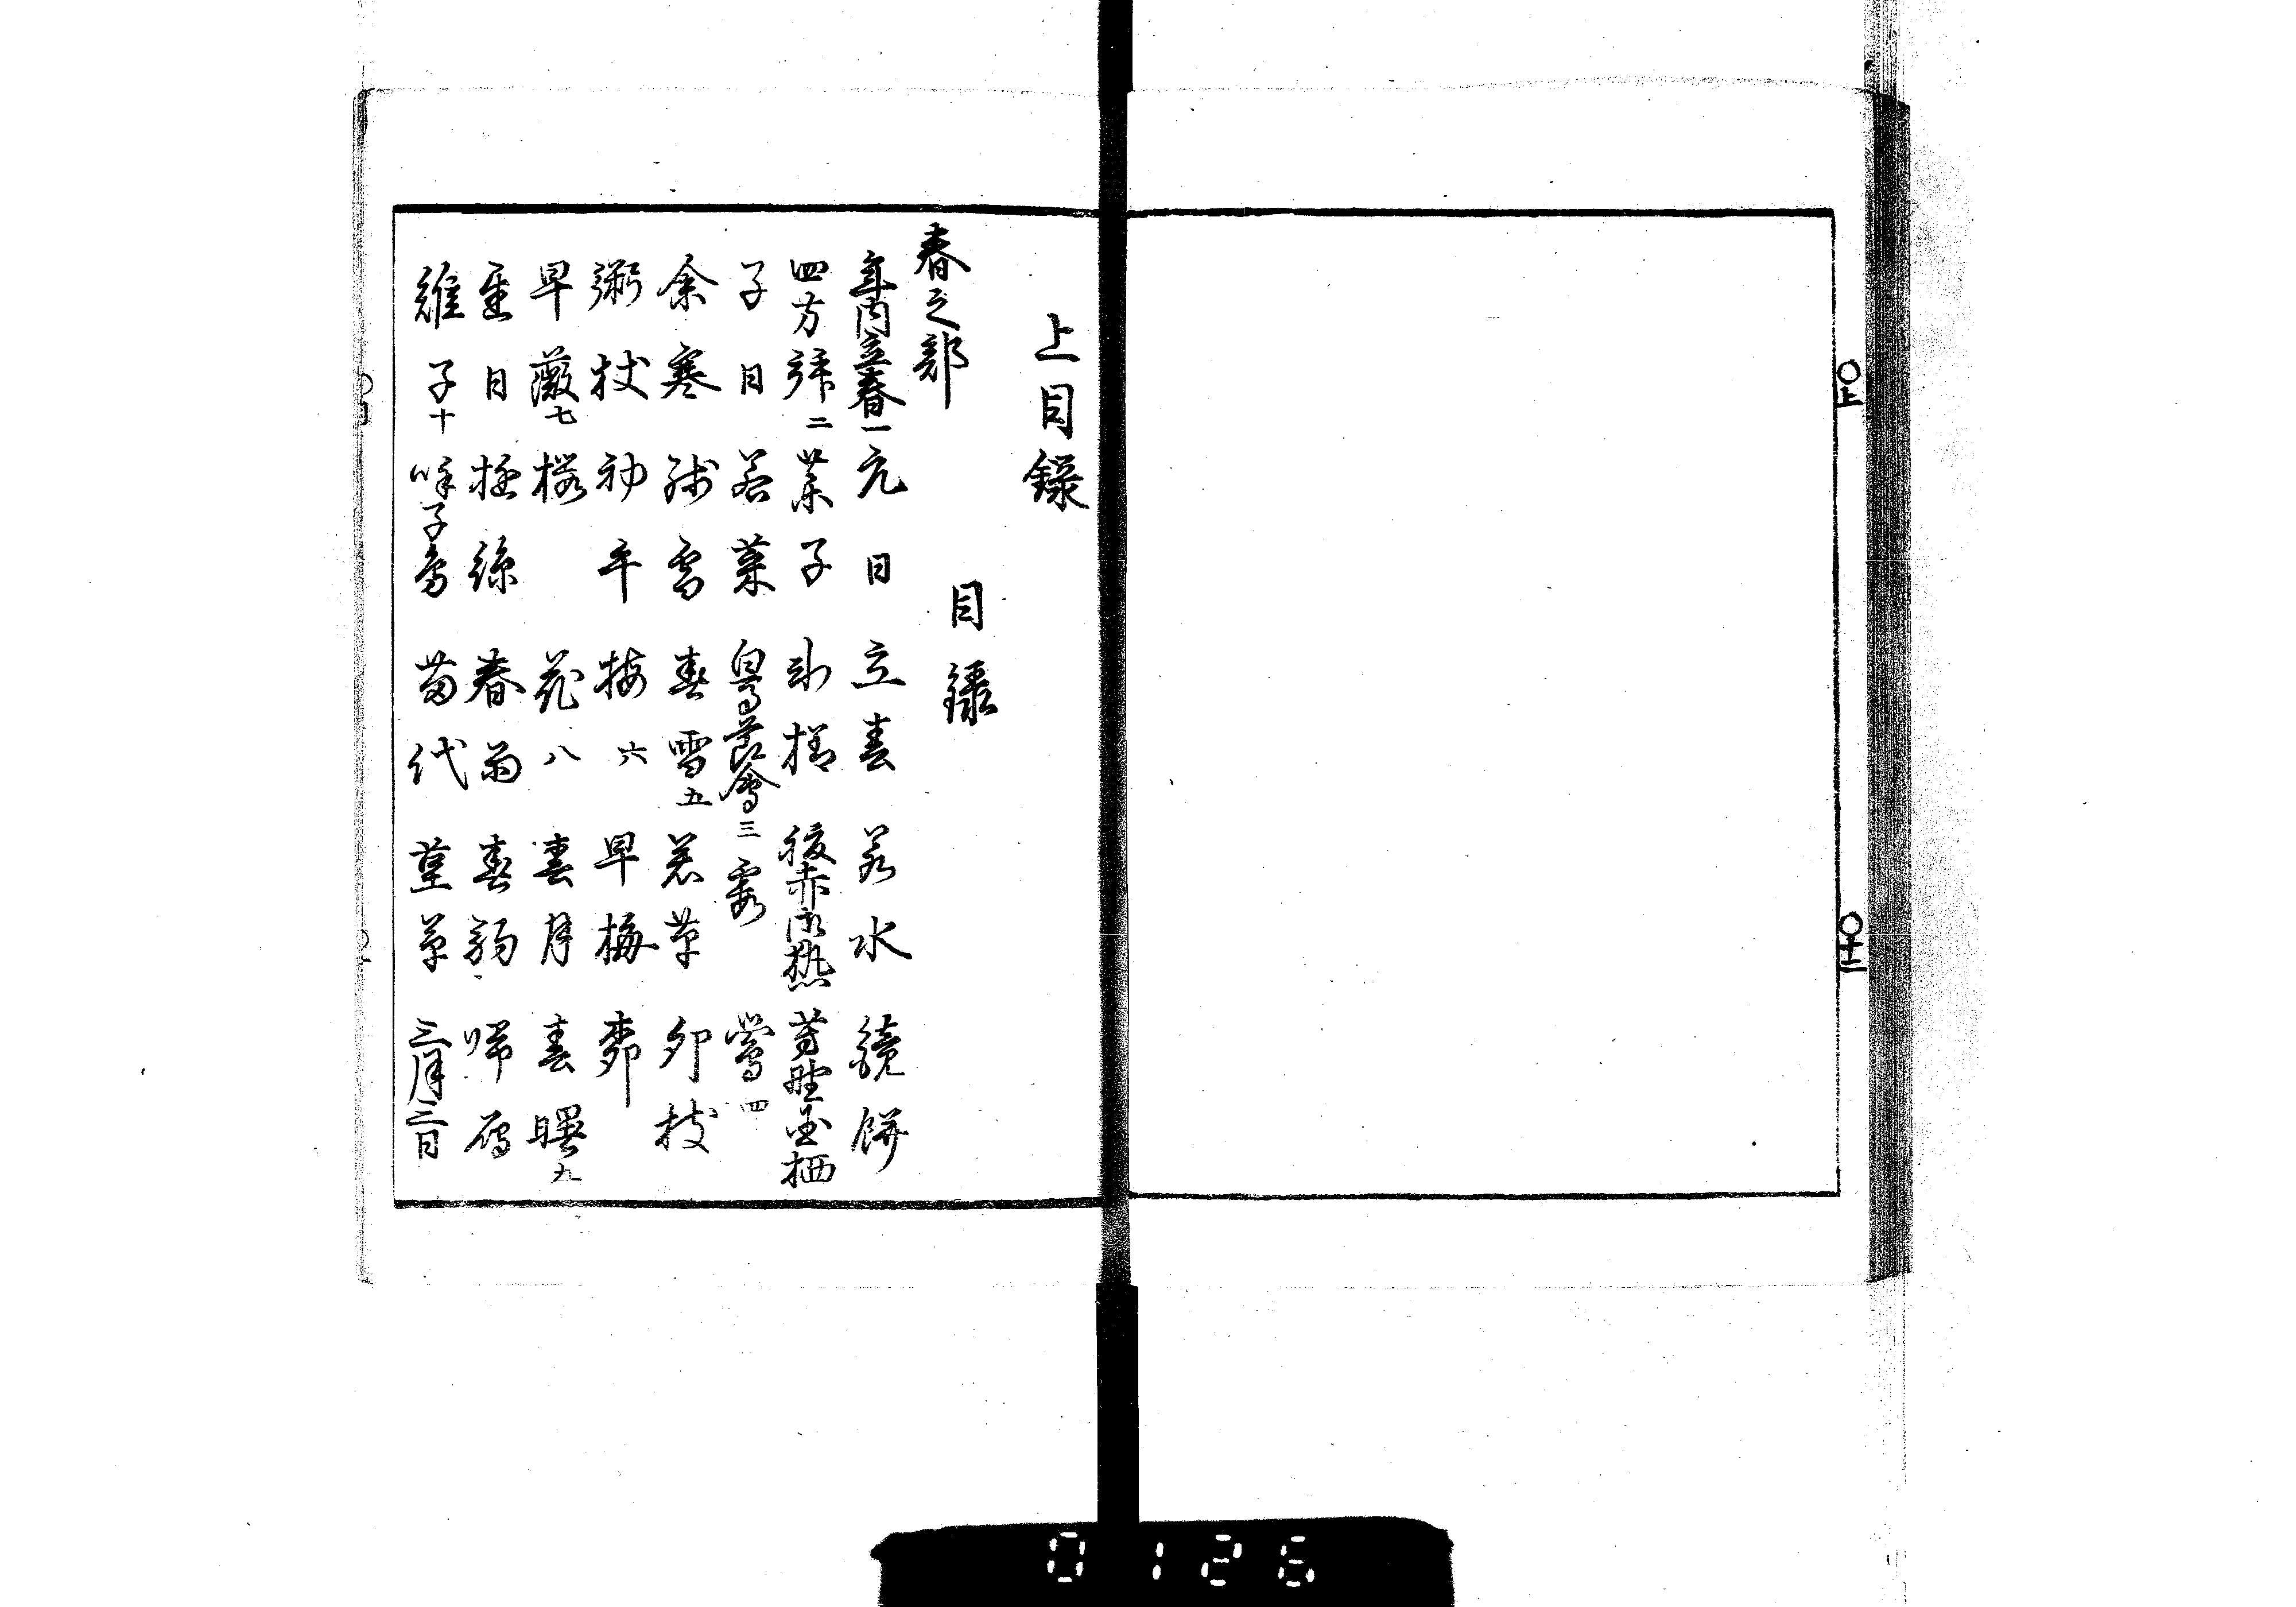 〇上
〇十二
上目録
目録
春之部
年内立春一 元日 立春 若水 鏡餅
四方拝二 菓子 後赤 芳野国栖
子日 若菜 白馬節会三 霞 鶯四
余寒 残雪 春雪五 若草 卯杖
粥杖 初午 梅六 早梅 柳
早蕨七 桜 花八 春月 春曙九
日 糸 春雨 春駒 帰雁
雉子十 呼子鳥 苗代 菫草 三月三日
0126